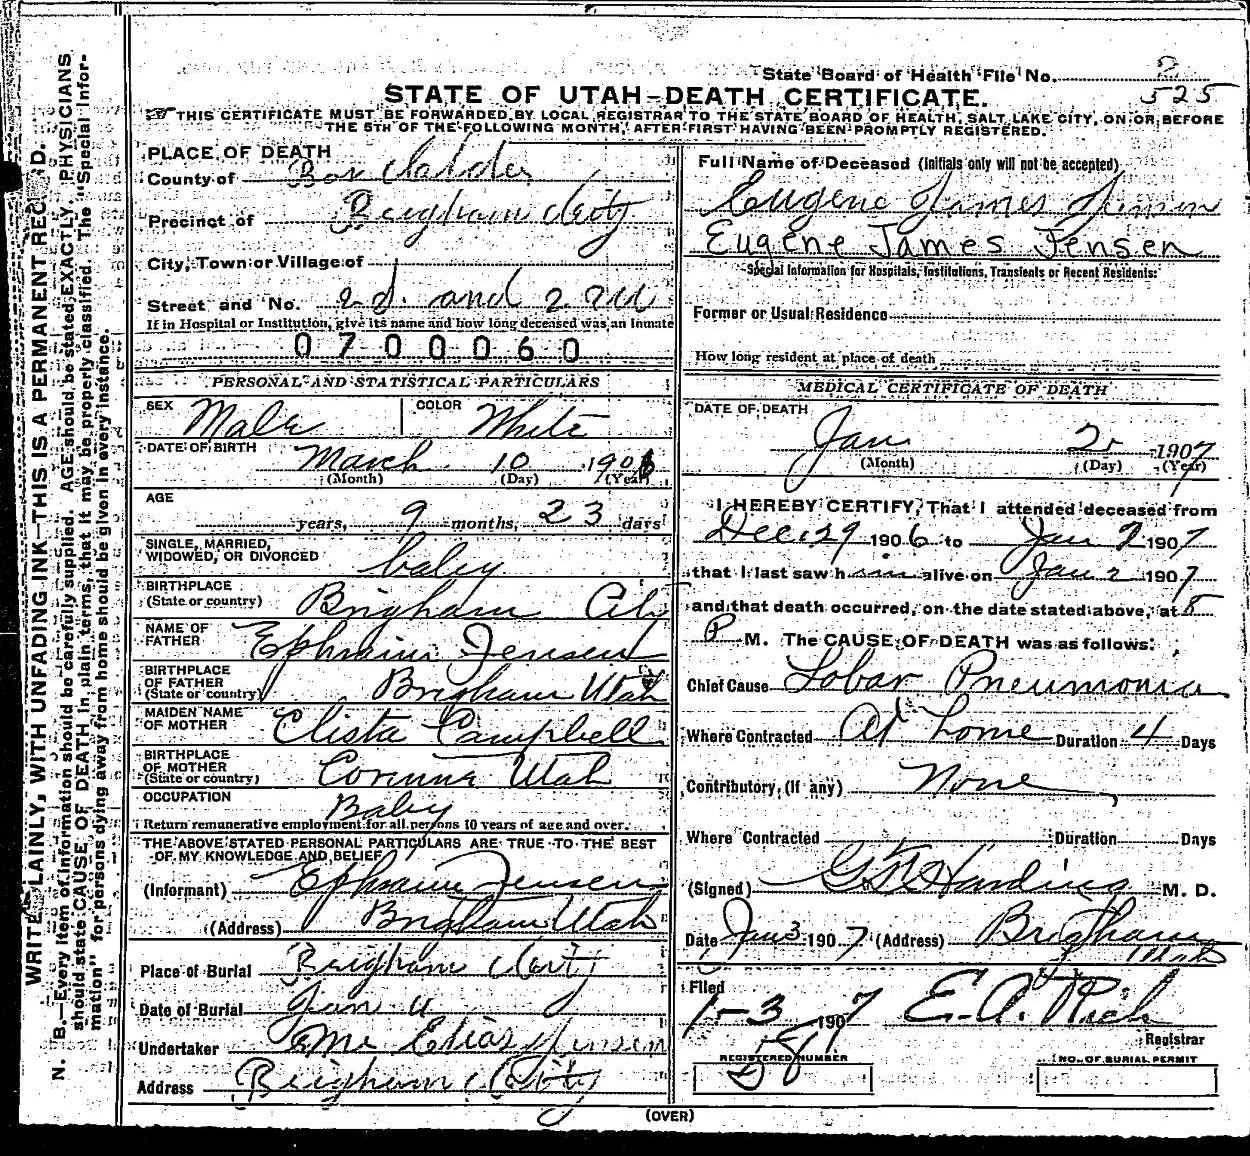 State Board of Health File No. 2
525
STATE OF UTAH-DEATH CERTIFICATE.
THIS CERTIFICATE MUST BE FORWARDED BY LOCAL REGISTRAR TO THE STATE BOARD OF HEALTH, SALT LAKE CITY, ON OR BEFORE
THE 5TH OF THE FOLLOWING MONTH, AFTER FIRST HAVING BEEN PROMPTLY REGISTERED.
PLACE OF DEATH
County of Box Elder
Precinct of Brigham City
City, Town or Village of
Street and No. and
If in Hospital or Institution, give its name and how long deceased was an inmate
0700060
PERSONAL AND STATISTICAL PARTICULARS
SEX Male COLOR White
DATE OF BIRTH March 10 1906
(Month) (Day) (Year)
AGE
years, 9 months, 23 days
SINGLE, MARRIED,
WIDOWED, OR DIVORCED baby
BIRTHPLACE
(State or country) Brigham City
NAME OF
FATHER Ephraim Jensen
BIRTHPLACE
OF FATHER
(State or country) Brigham Utah
MAIDEN NAME
OF MOTHER Elista Campbell
BIRTHPLACE
OF MOTHER
(State or country) Corinna Utah
OCCUPATION Baby
Return remunerative employment for all persons 10 years of age and over.
THE ABOVE STATED PERSONAL PARTICULARS ARE TRUE TO THE BEST
OF MY KNOWLEDGE AND BELIEF
(Informant) Ephraim Jensen
(Address) Brigham Utah
Place of Burial Brigham City
Date of Burial Jan
Undertaker Elias Jensen
Address Brigham City
Full Name of Deceased (Initials only will not be accepted)
Eugene James Jensen
Eugene James Jensen
Special Information for Hospitals, Institutions, Transients or Recent Residents:
Former or Usual Residence
How long resident at place of death
MEDICAL CERTIFICATE OF DEATH
DATE OF DEATH
Jan 2 1907
(Month) (Day) (Year)
I HEREBY CERTIFY, That I attended deceased from
Dec. 29 1906 to Jan 2 1907
that I last saw him alive on Jan 2 1907
and that death occurred, on the date stated above, at 5
P M. The CAUSE OF DEATH was as follows:
Chief Cause Lobar Pneumonia
Where Contracted At home Duration 4 Days
Contributory, (if any) None
Where Contracted Duration Days
(Signed) Harding M. D.
Date Jan 3 1907 (Address) Brigham
Utah
Filed
1-3 1907 E. A. Rich
Registrar
REGISTERED NUMBER
NO. OF BURIAL PERMIT
(OVER)
WRITE PLAINLY, WITH UNFADING INK—THIS IS A PERMANENT RECORD.
N. B.—Every item of information should be carefully supplied. AGE should be stated EXACTLY. PHYSICIANS
should state CAUSE OF DEATH in plain terms, that it may be properly classified. The "Special Infor-
mation" for persons dying away from home should be given in every instance.